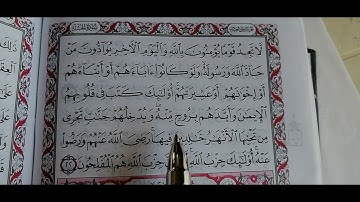 لَّا تَجِدُ قَوْمًا يُؤْمِنُونَ بِاللَّهِ وَالْيَوْمِ الْآخِرِ يُوَادُّونَ مَنْ
حَادَّ اللَّهَ وَرَسُولَهُ وَلَوْ كَانُوا ءَابَاءَهُمْ أَوْ أَبْنَاءَهُمْ
أَوْ إِخْوَانَهُمْ أَوْ عَشِيرَتَهُمْ أُولَٰئِكَ كَتَبَ فِي قُلُوبِهِمُ
الْإِيمَٰنَ وَأَيَّدَهُم بِرُوحٍ مِّنْهُ وَيُدْخِلُهُمْ جَنَّٰتٍ تَجْرِي
مِن تَحْتِهَا الْأَنْهَٰرُ خَٰلِدِينَ فِيهَا رَضِيَ اللَّهُ عَنْهُمْ وَرَضُوا
عَنْهُ أُولَٰئِكَ حِزْبُ اللَّهِ حِزْبَ اللَّهِ هُمُ الْمُفْلِحُونَ ٢٢